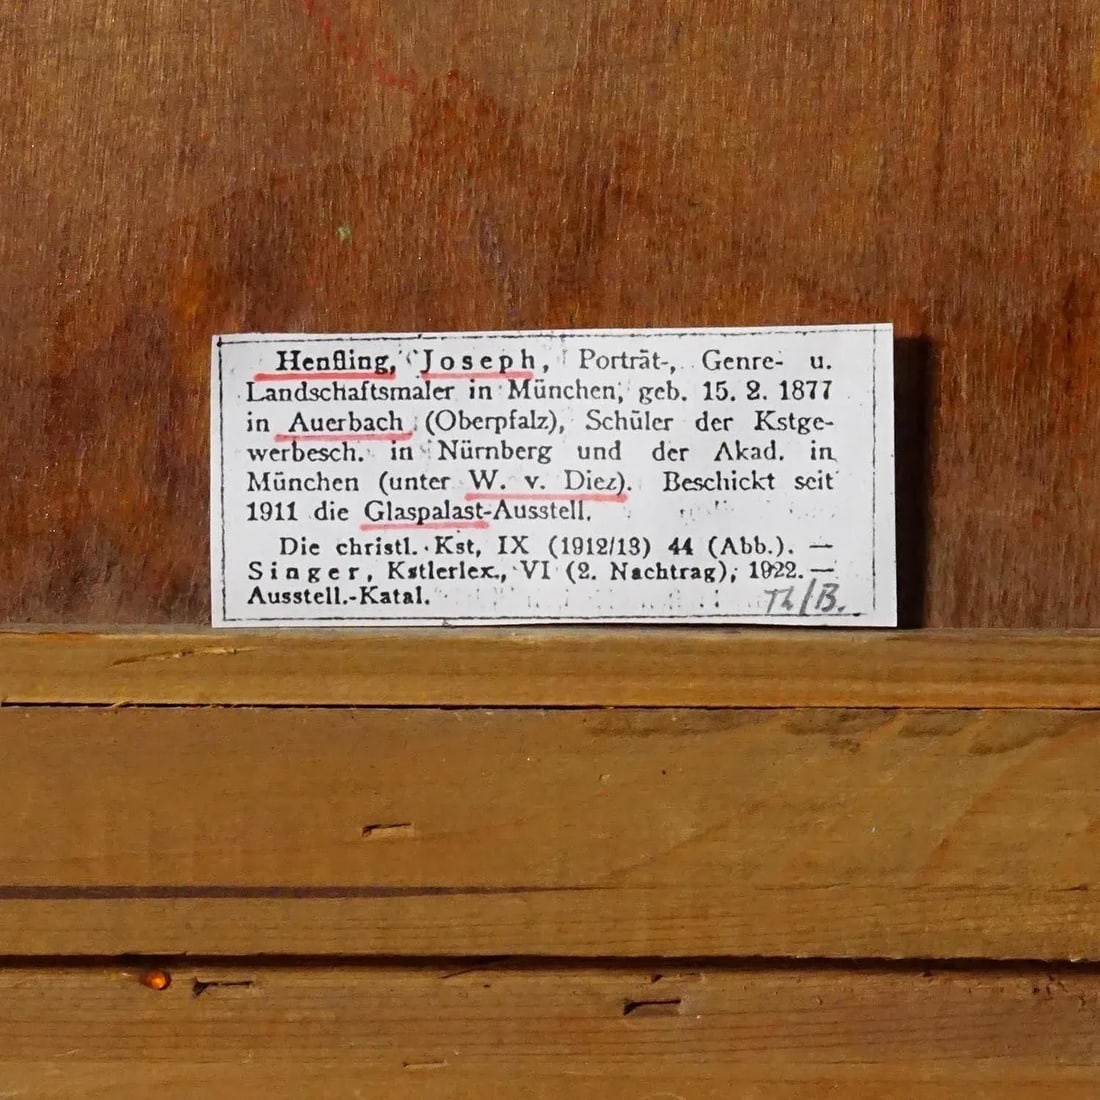 Henfling, Joseph, Porträt-, Genre- u.
Landschaftsmaler in München, geb. 15. 2. 1877
in Auerbach (Oberpfalz), Schüler der Kstge-
werbesch. in Nürnberg und der Akad. in
München (unter W. v. Diez). Beschickt seit
1911 die Glaspalast-Ausstell.
Die christl. Kst, IX (1912/13) 44 (Abb.). —
Singer, Kstlerlex., VI (2. Nachtrag), 1922. —
Ausstell.-Katal.
Th/B.